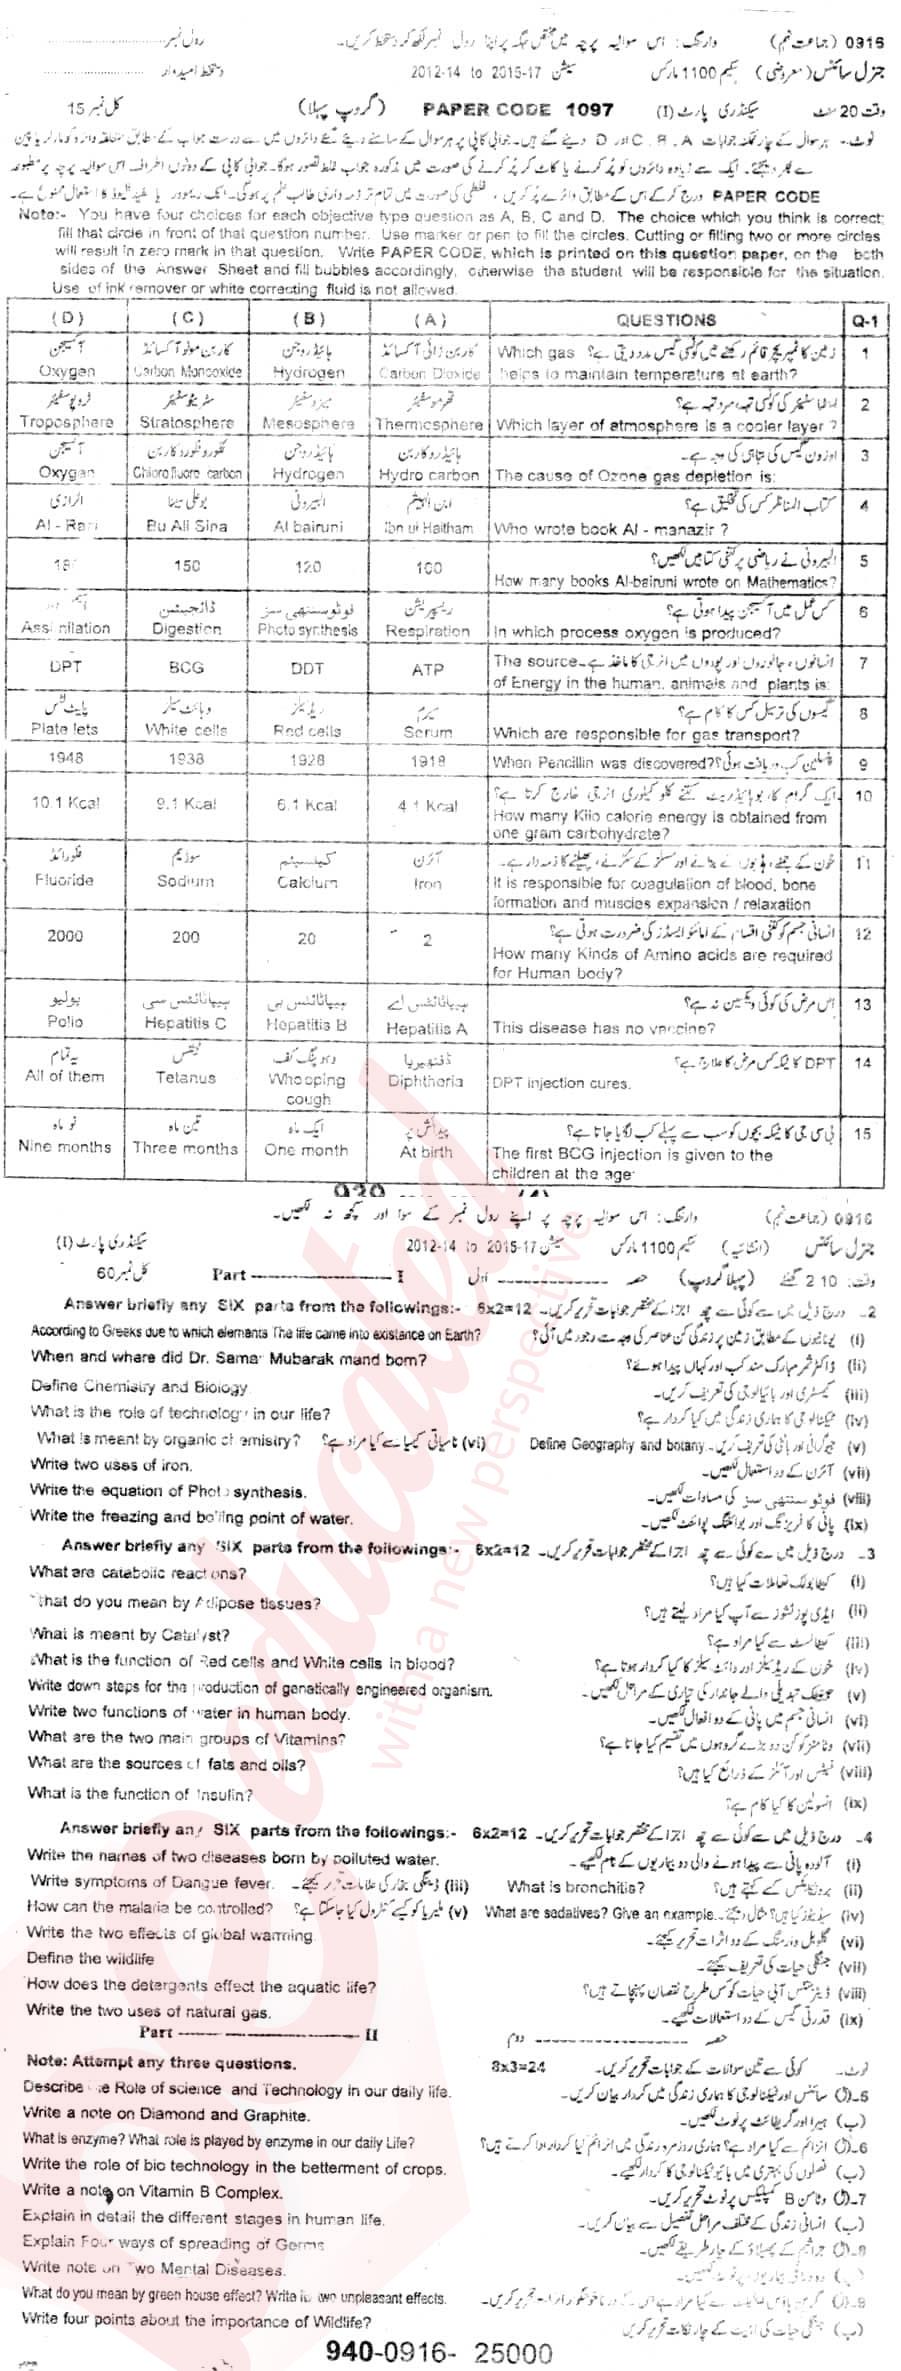 0916 (جماعت نہم) وارننگ: اس سوالیہ پرچہ میں مختص جگہ پر اپنا رول نمبر لکھ کر دستخط کریں۔ رول نمبر
جنرل سائنس (معروضی) سکیم 1100 مارکس سیشن 2015-17 to 2012-14 دستخط امیدوار
وقت 20 منٹ سیکنڈری پارٹ (I) PAPER CODE 1097 (گروپ پہلا) کل نمبر 15
نوٹ:- ہر سوال کے چار ممکنہ جوابات A، B، C اور D دیئے گئے ہیں۔ جوابی کاپی پر ہر سوال کے سامنے دیئے گئے دائروں میں سے درست جواب کے مطابق متعلقہ دائرہ کو مارکر یا پین
سے بھر دیجئے۔ ایک سے زیادہ دائروں کو پُر کرنے یا کاٹ کر پُر کرنے کی صورت میں مذکورہ جواب غلط تصور ہوگا۔ جوابی کاپی کے دونوں اطراف اس سوالیہ پرچہ پر مطبوعہ
PAPER CODE درج کر کے اس کے مطابق دائرے پُر کریں، غلطی کی صورت میں تمام تر ذمہ داری طالب علم پر ہوگی۔ انک ریموور یا سفید فلیوڈ کا استعمال ممنوع ہے۔
Note:- You have four choices for each objective type question as A, B, C and D. The choice which you think is correct;
fill that circle in front of that question number. Use marker or pen to fill the circles. Cutting or filling two or more circles
will result in zero mark in that question. Write PAPER CODE, which is printed on this question paper, on the both
sides of the Answer Sheet and fill bubbles accordingly, otherwise the student will be responsible for the situation.
Use of ink remover or white correcting fluid is not allowed.
(D) (C) (B) (A) QUESTIONS Q-1
آکسیجن کاربن مونو آکسائڈ ہائیڈروجن کاربن ڈائی آکسائڈ زمین کا ٹمپریچر قائم رکھنے میں کونسی گیس مدد دیتی ہے؟ Which gas 1
Oxygen Carbon Monoxide Hydrogen Carbon Dioxide helps to maintain temperature at earth?
ٹروپوسفئیر سٹریٹوسفئیر میزوسفئیر تھرموسفئیر اٹماسفئیر کی کونسی تہہ سرد تہہ ہے؟ 2
Troposphere Stratosphere Mesosphere Thermosphere Which layer of atmosphere is a cooler layer ?
آکسیجن کلوروفلوروکاربن ہائیڈروجن ہائیڈروکاربن اوزون گیس کی تباہی کی وجہ ہے۔ 3
Oxygen Chlorofluoro carbon Hydrogen Hydro carbon The cause of Ozone gas depletion is:
الرازی بوعلی سینا البیرونی ابن الہیثم کتاب المناظر کس کی تخلیق ہے؟ 4
Al - Razi Bu Ali Sina Al bairuni Ibn ul Haitham Who wrote book Al - manazir ?
البیرونی نے ریاضی پر کتنی کتابیں لکھیں؟ 5
150 120 How many books Al-bairuni wrote on Mathematics?
ڈائجیشن فوٹو سنتھی سز ریسپریشن کس عمل میں آکسیجن پیدا ہوتی ہے؟ 6
Assimilation Digestion Photosynthesis Respiration In which process oxygen is produced?
DPT BCG DDT ATP The source انسانوں، جانوروں اور پودوں میں انرجی کا ماخذ ہے۔ 7
of Energy in the human, animals and plants is:
پلیٹ لٹس وہائٹ سیلز ریڈ سیلز سیرم گیسوں کی ترسیل کس کا کام ہے؟ 8
Plate lets White cells Red cells Serum Which are responsible for gas transport?
1948 1938 1928 1918 When Pencillin was discovered? پنسلین کب دریافت ہوئی؟ 9
10.1 Kcal 9.1 Kcal 6.1 Kcal 4.1 Kcal ایک گرام کاربوہائیڈریٹ کتنے کلو کیلوری انرجی خارج کرتا ہے؟ 10
How many Kilo calorie energy is obtained from
one gram carbohydrate?
فلورائڈ سوڈیم کیلسیئم آئرن خون کے جمنے، ہڈیوں کے بنانے اور مسلز کے سکڑنے، پھیلنے کا ذمہ دار ہے۔ 11
Fluoride Sodium Calcium Iron It is responsible for coagulation of blood, bone
formation and muscles expansion / relaxation
2000 200 20 2 انسانی جسم کو کتنی اقسام کے امائنو ایسڈز کی ضرورت ہوتی ہے؟ 12
How many Kinds of Amino acids are required
for Human body?
پولیو ہیپاٹائٹس سی ہیپاٹائٹس بی ہیپاٹائٹس اے اس مرض کی کوئی ویکسین نہ ہے؟ 13
Polio Hepatitis C Hepatitis B Hepatitis A This disease has no vaccine?
یہ تمام ٹیٹنس وہوپنگ کف ڈفتھیریا DPT کا ٹیکہ کس مرض کا علاج ہے؟ 14
All of them Tetanus Whooping cough Diphtheria DPT injection cures.
نو ماہ تین ماہ ایک ماہ پیدائش پر بی سی جی کا ٹیکہ بچوں کو سب سے پہلے کب لگایا جاتا ہے؟ 15
Nine months Three months One month At birth The first BCG injection is given to the
children at the age:
0916 (جماعت نہم) وارننگ: اس سوالیہ پرچہ پر اپنے رول نمبر کے سوا اور کچھ نہ لکھیں۔
جنرل سائنس (انشائیہ) سکیم 1100 مارکس سیشن 2015-17 to 2012-14 سیکنڈری پارٹ (I)
وقت: 2:10 گھنٹے (پہلا گروپ) حصہ اول Part I کل نمبر 60
Answer briefly any SIX parts from the followings:- 6x2=12 2۔ درج ذیل میں سے کوئی سے چھ اجزا کے مختصر جوابات تحریر کریں۔
According to Greeks due to which elements The life came into existance on Earth? (i) یونانیوں کے مطابق زمین پر زندگی کن عناصر کی وجہ سے وجود میں آئی؟
When and where did Dr. Samar Mubarak mand born? (ii) ڈاکٹر ثمر مبارک مند کب اور کہاں پیدا ہوئے؟
Define Chemistry and Biology. (iii) کیمسٹری اور بائیالوجی کی تعریف کریں۔
What is the role of technology in our life? (iv) ٹیکنالوجی کا ہماری زندگی میں کیا کردار ہے؟
What is meant by organic chemistry? نامیاتی کیمیا سے کیا مراد ہے؟ (vi) Define Geography and botany. (v) جیوگرافی اور باٹنی کی تعریف کریں۔
Write two uses of iron. (vii) آئرن کے دو استعمال لکھیں۔
Write the equation of Photo synthesis. (viii) فوٹو سنتھی سز کی مساوات لکھیں۔
Write the freezing and boiling point of water. (ix) پانی کا فریزنگ اور بوائلنگ پوائنٹ لکھیں۔
Answer briefly any SIX parts from the followings:- 6x2=12 3۔ درج ذیل میں سے کوئی سے چھ اجزا کے مختصر جوابات تحریر کریں۔
What are catabolic reactions? (i) کیٹابولک تعاملات کیا ہیں؟
What do you mean by Adipose tissues? (ii) ایڈی پوز ٹشوز سے آپ کیا مراد لیتے ہیں؟
What is meant by Catalyst? (iii) کیٹالسٹ سے کیا مراد ہے؟
What is the function of Red cells and White cells in blood? (iv) خون کے ریڈ سیلز اور وائٹ سیلز کا کیا کردار ہوتا ہے؟
Write down steps for the production of genetically engineered organism. (v) جینیٹک تبدیلی والے جاندار کی تیاری کے مراحل لکھیں۔
Write two functions of water in human body. (vi) انسانی جسم میں پانی کے دو افعال لکھیں۔
What are the two main groups of Vitamins? (vii) وٹامنز کو کن دو بڑے گروہوں میں تقسیم کیا جاتا ہے؟
What are the sources of fats and oils? (viii) فیٹس اور آئلز کے ذرائع کیا ہیں؟
What is the function of Insulin? (ix) انسولین کا کیا کام ہے؟
Answer briefly any SIX parts from the followings:- 6x2=12 4۔ درج ذیل میں سے کوئی سے چھ اجزا کے مختصر جوابات تحریر کریں۔
Write the names of two diseases born by polluted water. (i) آلودہ پانی سے پیدا ہونے والی دو بیماریوں کے نام لکھیے۔
Write symptoms of Dangue fever. ڈینگی بخار کی علامات تحریر کیجئے۔ (iii) What is bronchitis? (ii) برونکائٹس کسے کہتے ہیں؟
How can the malaria be controlled? ملیریا کو کیسے کنٹرول کیا جا سکتا ہے؟ (v) What are sedatives? Give an example. (iv) سیڈیٹوز کیا ہیں؟ مثال دیجئے۔
Write the two effects of global warming. (vi) گلوبل وارمنگ کے دو اثرات تحریر کیجئے۔
Define the wildlife (vii) جنگلی حیات کی تعریف کیجئے۔
How does the detergents effect the aquatic life? (viii) ڈیٹرجنٹس آبی حیات کو کس طرح نقصان پہنچاتے ہیں؟
Write the two uses of natural gas. (ix) قدرتی گیس کے دو استعمالات لکھیے۔
Part II حصہ دوم
Note: Attempt any three questions. 8x3=24 نوٹ۔ کوئی سے تین سوالات کے جوابات تحریر کریں۔
Describe the Role of science and Technology in our daily life. 5۔(ا) سائنس اور ٹیکنالوجی کا ہماری زندگی میں کردار بیان کریں۔
Write a note on Diamond and Graphite. (ب) ہیرا اور گریفائٹ پر نوٹ لکھیں۔
What is enzyme? What role is played by enzyme in our daily Life? 6۔(ا) انزائم سے کیا مراد ہے؟ ہماری روزمرہ زندگی میں انزائم کیا کردار ادا کرتے ہیں؟
Write the role of bio technology in the betterment of crops. (ب) فصلوں کی بہتری میں بائیوٹیکنالوجی کا کردار لکھیے۔
Write a note on Vitamin B Complex. 7۔(ا) وٹامن B کمپلیکس پر نوٹ تحریر کریں۔
Explain in detail the different stages in human life. (ب) انسانی زندگی کے مختلف مراحل تفصیل سے بیان کریں۔
Explain Four ways of spreading of Germs 8۔(ا) جراثیم کے پھیلاؤ کے چار طریقے لکھیں۔
Write note on Two Mental Diseases.
What do you mean by green house effect? Write its two unpleasant effects.
Write four points about the importance of Wildlife? (ب) جنگلی حیات کی اہمیت کے چار نکات تحریر کریں
940-0916- 25000
educated
with a new perspective